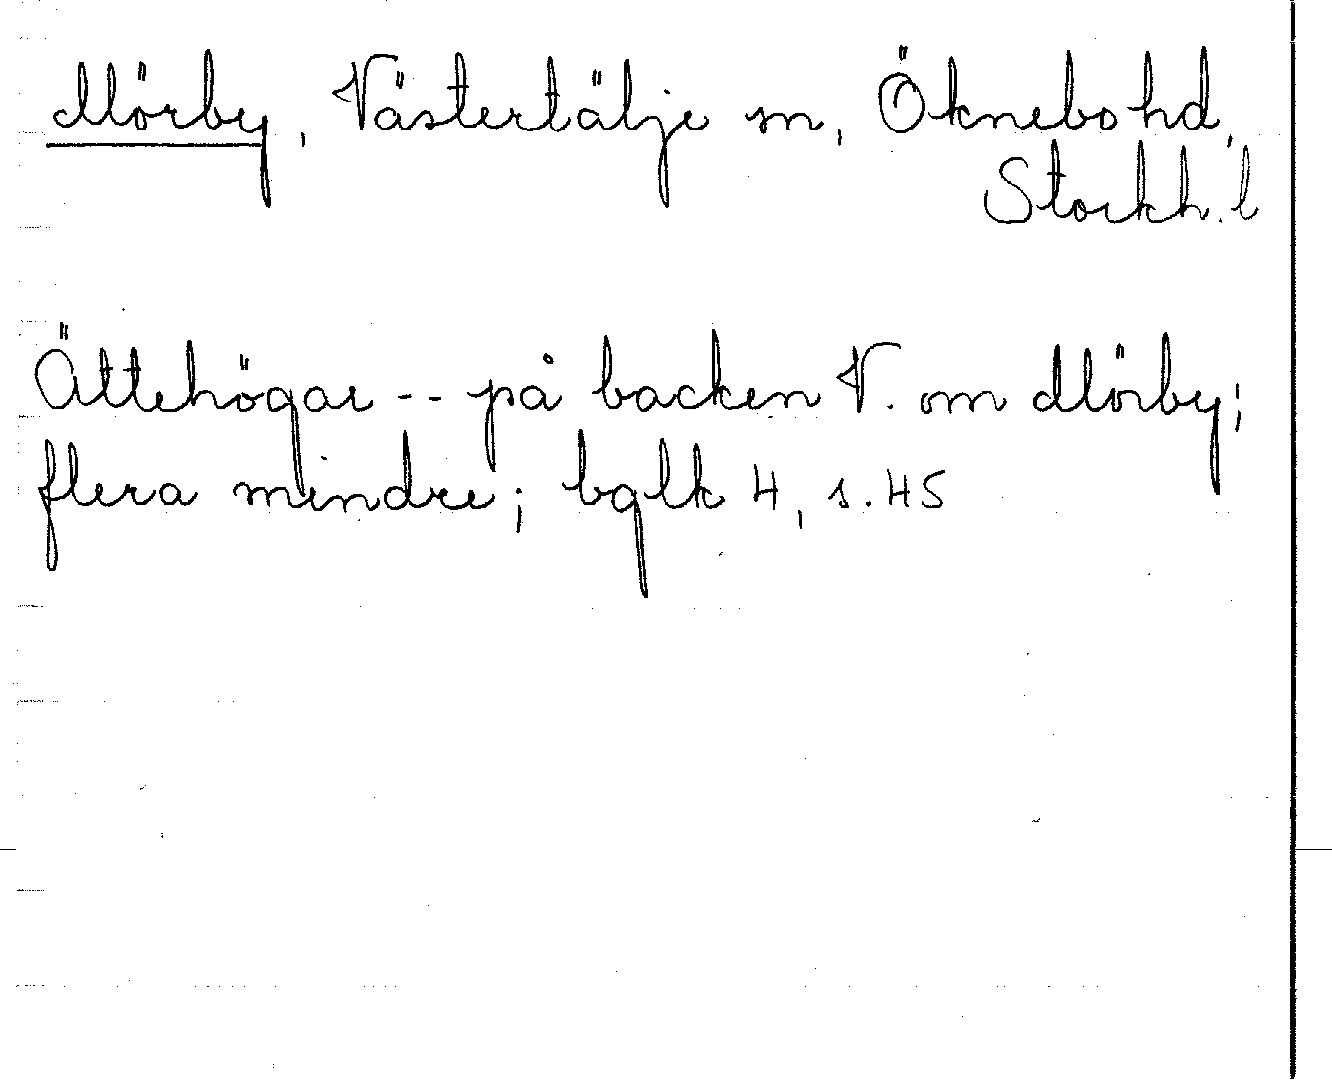 Mörby, Västertälje sn, Öknebo hd,
Stockh. l
Ättehögar -- på backen V. om Mörby;
flera mindre; bglk 4, s. 45